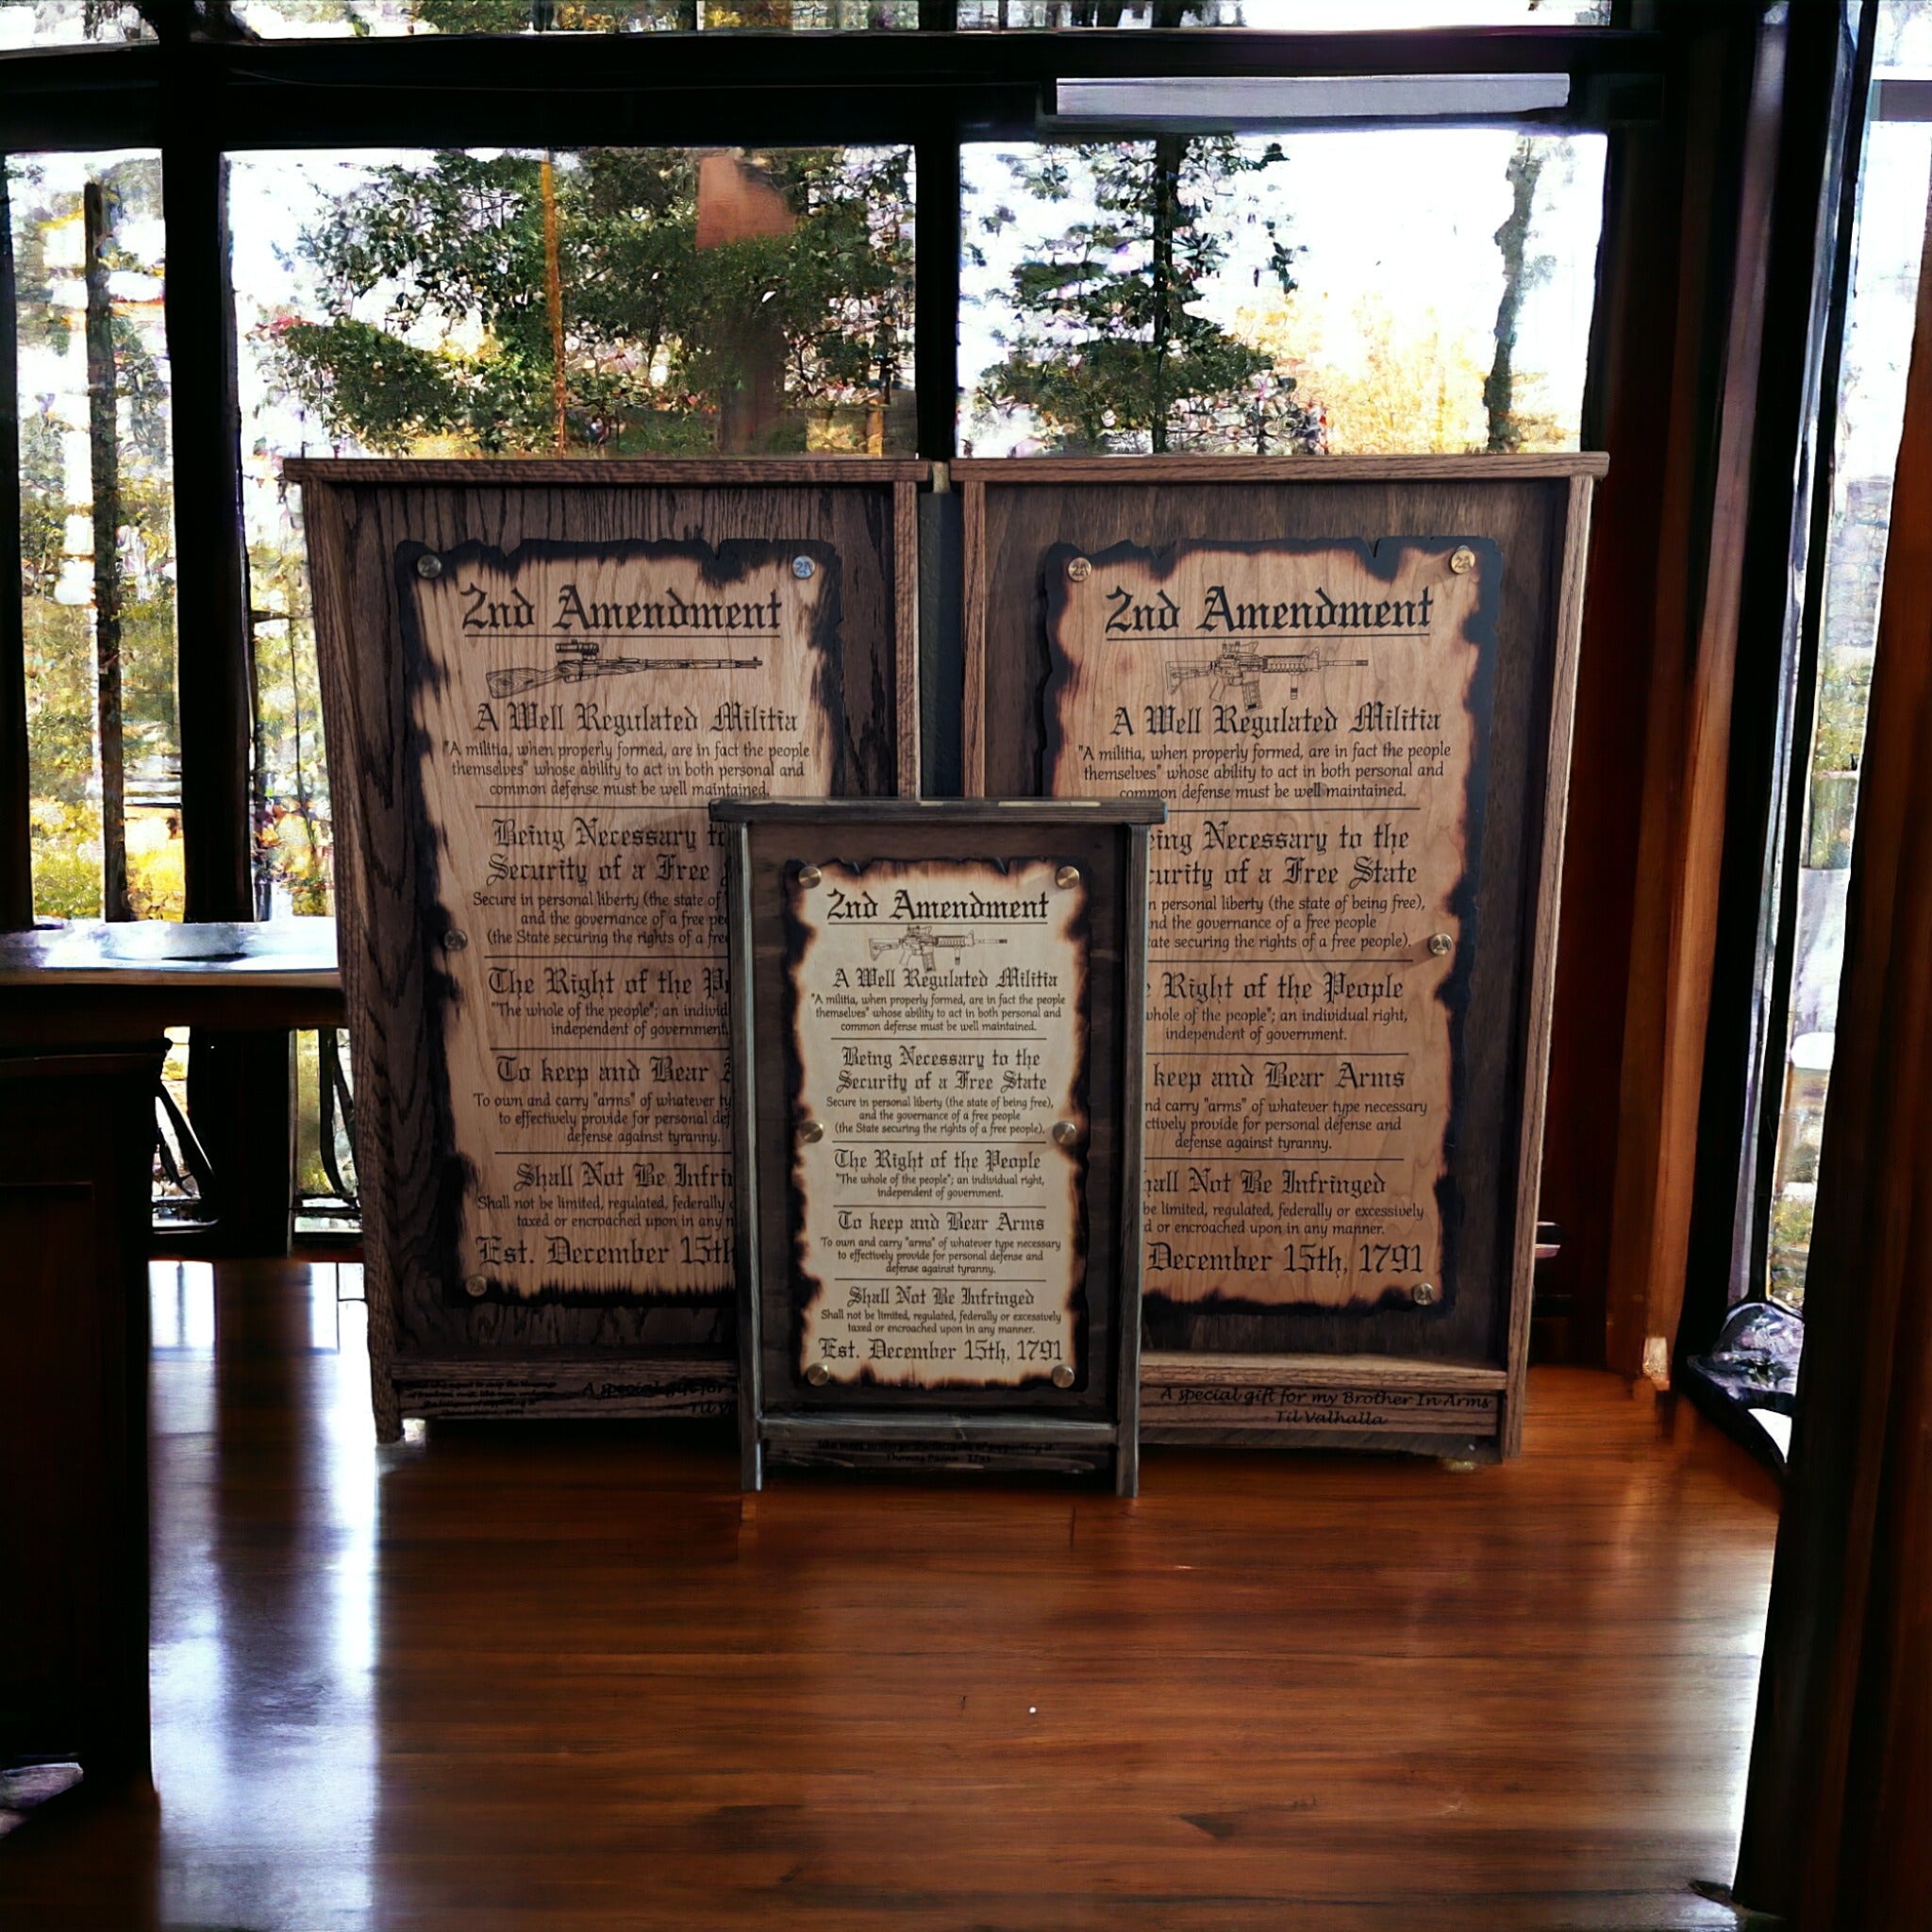 2nd Amendment
A Well Regulated Militia
"A militia, when properly formed, are in fact the people
themselves" whose ability to act in both personal and
common defense must be well maintained.
Being Necessary to
Security of a Free
Secure in personal liberty (the state of
and the governance of a free
(the State securing the rights of a
The Right of the
"The whole of the people"; an
independent of government.
To keep and Bear
To own and carry "arms" of whatever
to effectively provide for personal
defense against tyranny.
Shall Not Be
Shall not be limited, regulated, federally
taxed or encroached upon in any
Est. December 15th
A special gift for
2A
2nd Amendment
A Well Regulated Militia
"A militia, when properly formed, are in fact the people
themselves" whose ability to act in both personal and
common defense must be well maintained.
Being Necessary to the
Security of a Free State
Secure in personal liberty (the state of being free),
and the governance of a free people
(the State securing the rights of a free people).
The Right of the People
"The whole of the people"; an individual right,
independent of government.
To keep and Bear Arms
To own and carry "arms" of whatever type necessary
to effectively provide for personal defense and
defense against tyranny.
Shall Not Be Infringed
Shall not be limited, regulated, federally or excessively
taxed or encroached upon in any manner.
Est. December 15th, 1791
2A
2A
2nd Amendment
A Well Regulated Militia
"A militia, when properly formed, are in fact the people
themselves" whose ability to act in both personal and
common defense must be well maintained.
Necessary to the
of a Free State
personal liberty (the state of being free),
the governance of a free people
securing the rights of a free people).
2A
Right of the People
an individual right,
independent of government.
keep and Bear Arms
carry "arms" of whatever type necessary
provide for personal defense and
defense against tyranny.
Not Be Infringed
be limited, regulated, federally or excessively
or encroached upon in any manner.
December 15th, 1791
2A
A special gift for my Brother In Arms
- Til Valhalla